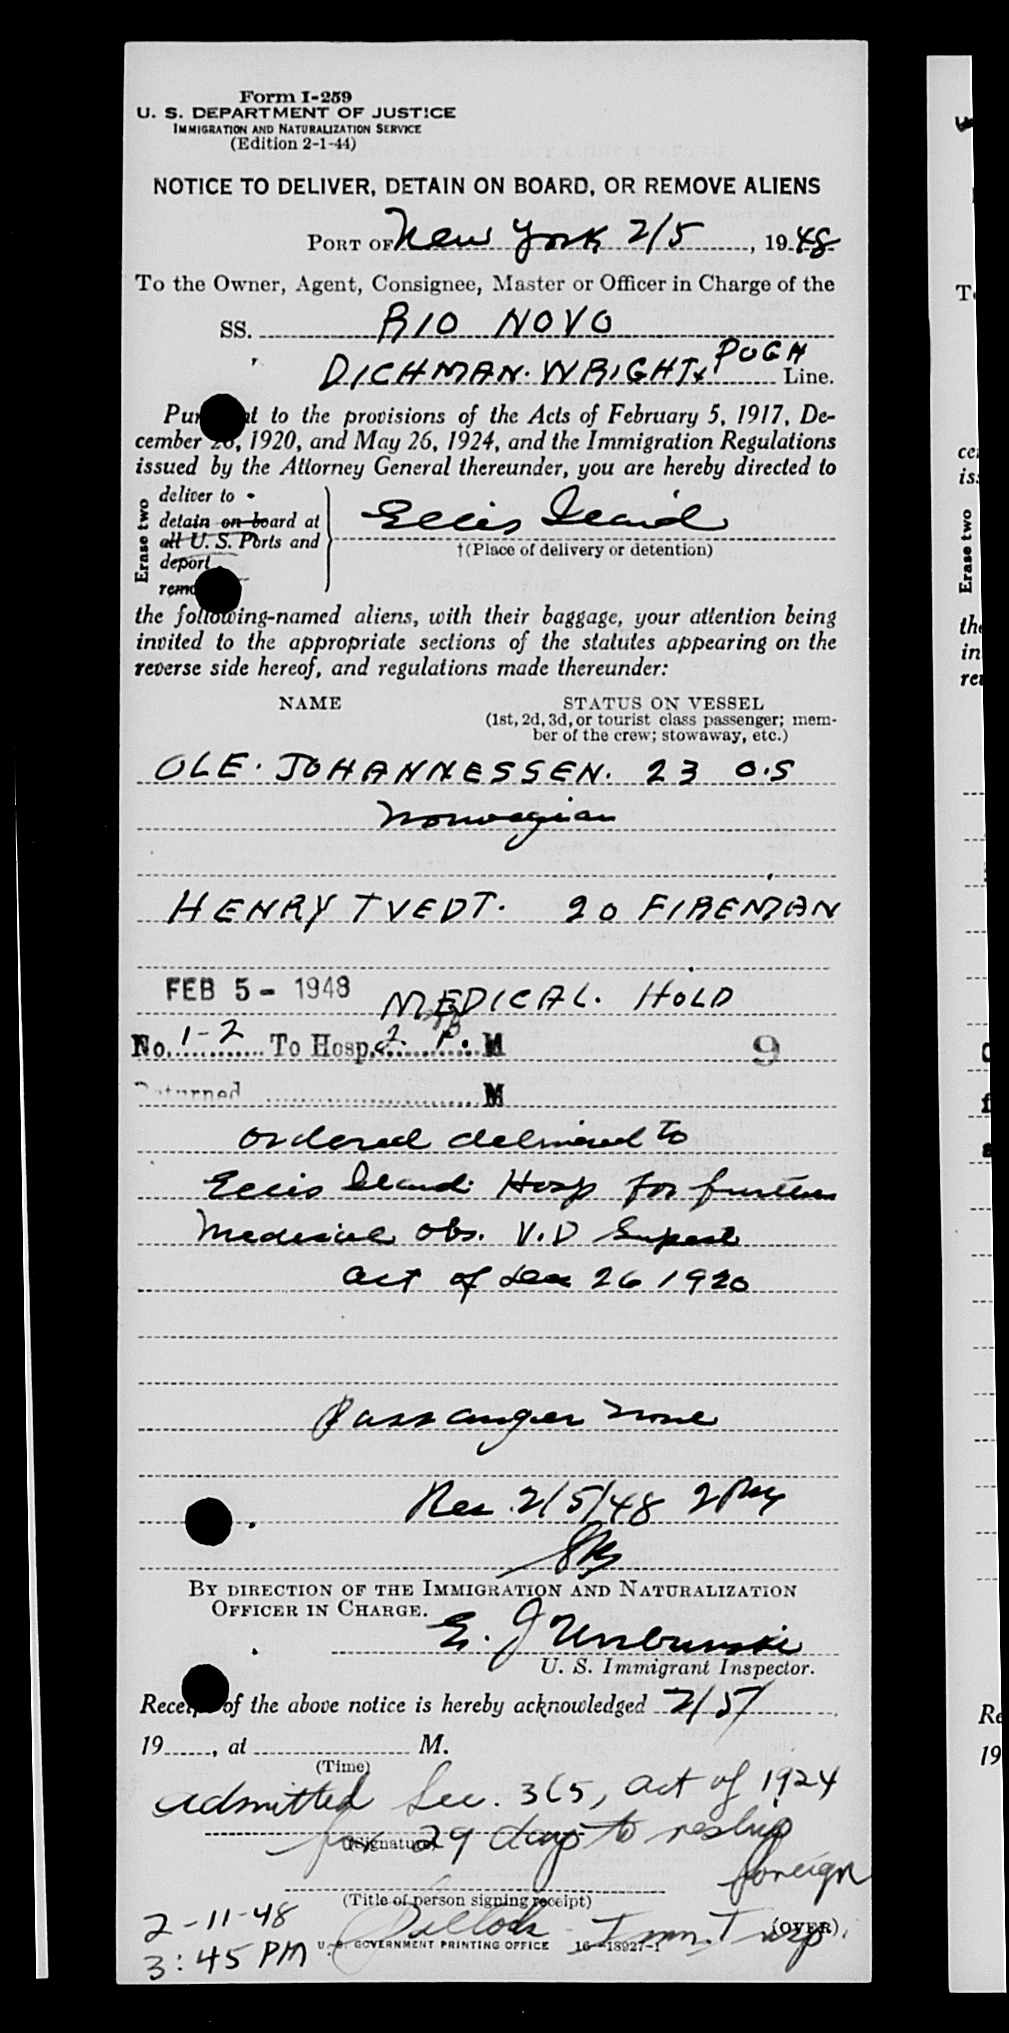 Form I-259
U. S. DEPARTMENT OF JUSTICE
IMMIGRATION AND NATURALIZATION SERVICE
(Edition 2-1-44)
NOTICE TO DELIVER, DETAIN ON BOARD, OR REMOVE ALIENS
PORT OF New York 2/5, 19 48
To the Owner, Agent, Consignee, Master or Officer in Charge of the
SS. RIO NOVO
DICHMAN. WRIGHT & PUGH Line.
Pur t to the provisions of the Acts of February 5, 1917, De-
cember 26, 1920, and May 26, 1924, and the Immigration Regulations
issued by the Attorney General thereunder, you are hereby directed to
Erase two
deliver to
detain on board at
all U. S. Ports and
deport
remo
Ellis Island
†(Place of delivery or detention)
the following-named aliens, with their baggage, your attention being
invited to the appropriate sections of the statutes appearing on the
reverse side hereof, and regulations made thereunder:
NAME STATUS ON VESSEL
(1st, 2d, 3d, or tourist class passenger; mem-
ber of the crew; stowaway, etc.)
OLE. JOHANNESSEN. 23 O.S
Norwegian
HENRY TVEDT. 20 FIREMAN
FEB 5 - 1948 MEDICAL. HOLD
No. 1-2 To Hosp. 2 P. M 9
Returned M
ordered delivered to
Ellis Island Hosp for further
Medical obs. V.D Suspect
act of Dec 26 1920
Passenger none
Rec. 2/5/48 2 PM
BY DIRECTION OF THE IMMIGRATION AND NATURALIZATION
OFFICER IN CHARGE.
E. J
U. S. Immigrant Inspector.
Receipt of the above notice is hereby acknowledged 2/5/
19 , at M.
(Time)
admitted Sec. 3(5, act of 1924
for 29 days to reship
(Signature)
foreign
(Title of person signing receipt)
2-11-48
Imm. Insp
(OVER)
3:45 PM
U. S. GOVERNMENT PRINTING OFFICE 16-18927-1